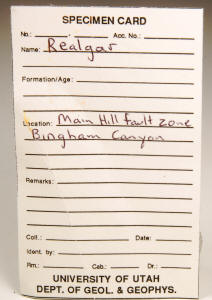 SPECIMEN CARD
No.: . Acc. No.:
Name: Realgar
Formation/Age:
Location: Main Hill fault zone
Bingham Canyon
Remarks:
Coll.: Date:
Ident. by:
Rm.: Cab.: Dr.:
UNIVERSITY OF UTAH
DEPT. OF GEOL. & GEOPHYS.